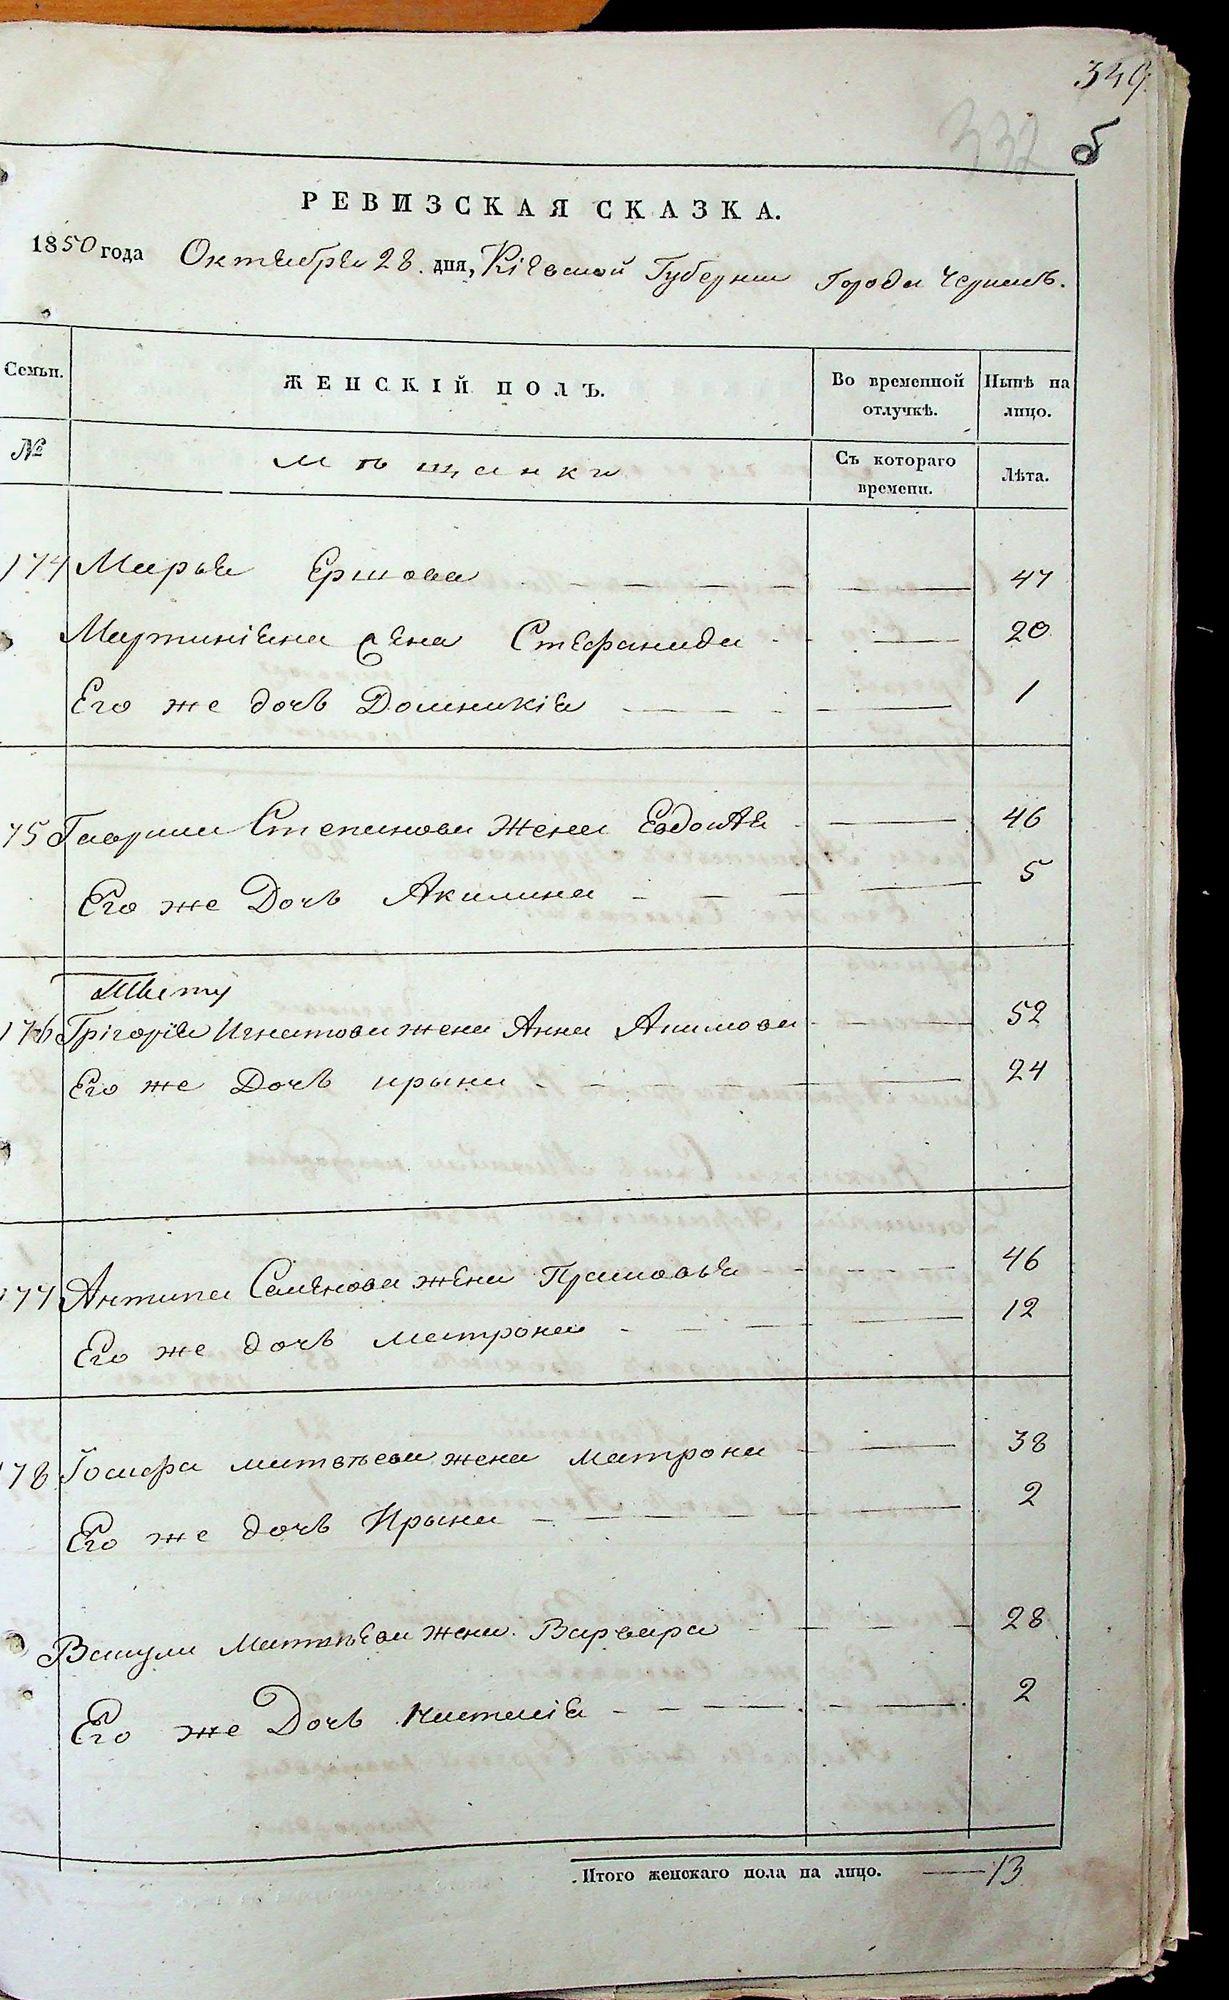 349
332
б
РЕВИЗСКАЯ СКАЗКА.
1850 года Октября 28. дня, Кіевской Губерніи Города Черкасъ.
Семьи. ЖЕНСКІЙ ПОЛЪ. Во временной отлучкѣ. Нынѣ на лицо.
№ мѣщанки Съ котораго времени. Лѣта.
174 Марья Ершова 47
Мартиніена Стефанида 20
Его же дочь Домникія 1
175 Гаврила Степанова жена Евдокія 46
Его же Дочь Акилина 5
176 Грігорія Игнатова жена Анна Акимова 52
Его же Дочь ирына 24
177 Антипа Семенова жена Прасковья 46
Его же дочь матрона 12
178 Іосифа матвѣева жена матрона 38
Его же дочь Ирына 2
Вакулы Матвѣева жена Варвара 28
Его же Дочь Наталія 2
Итого женскаго пола на лицо. 13